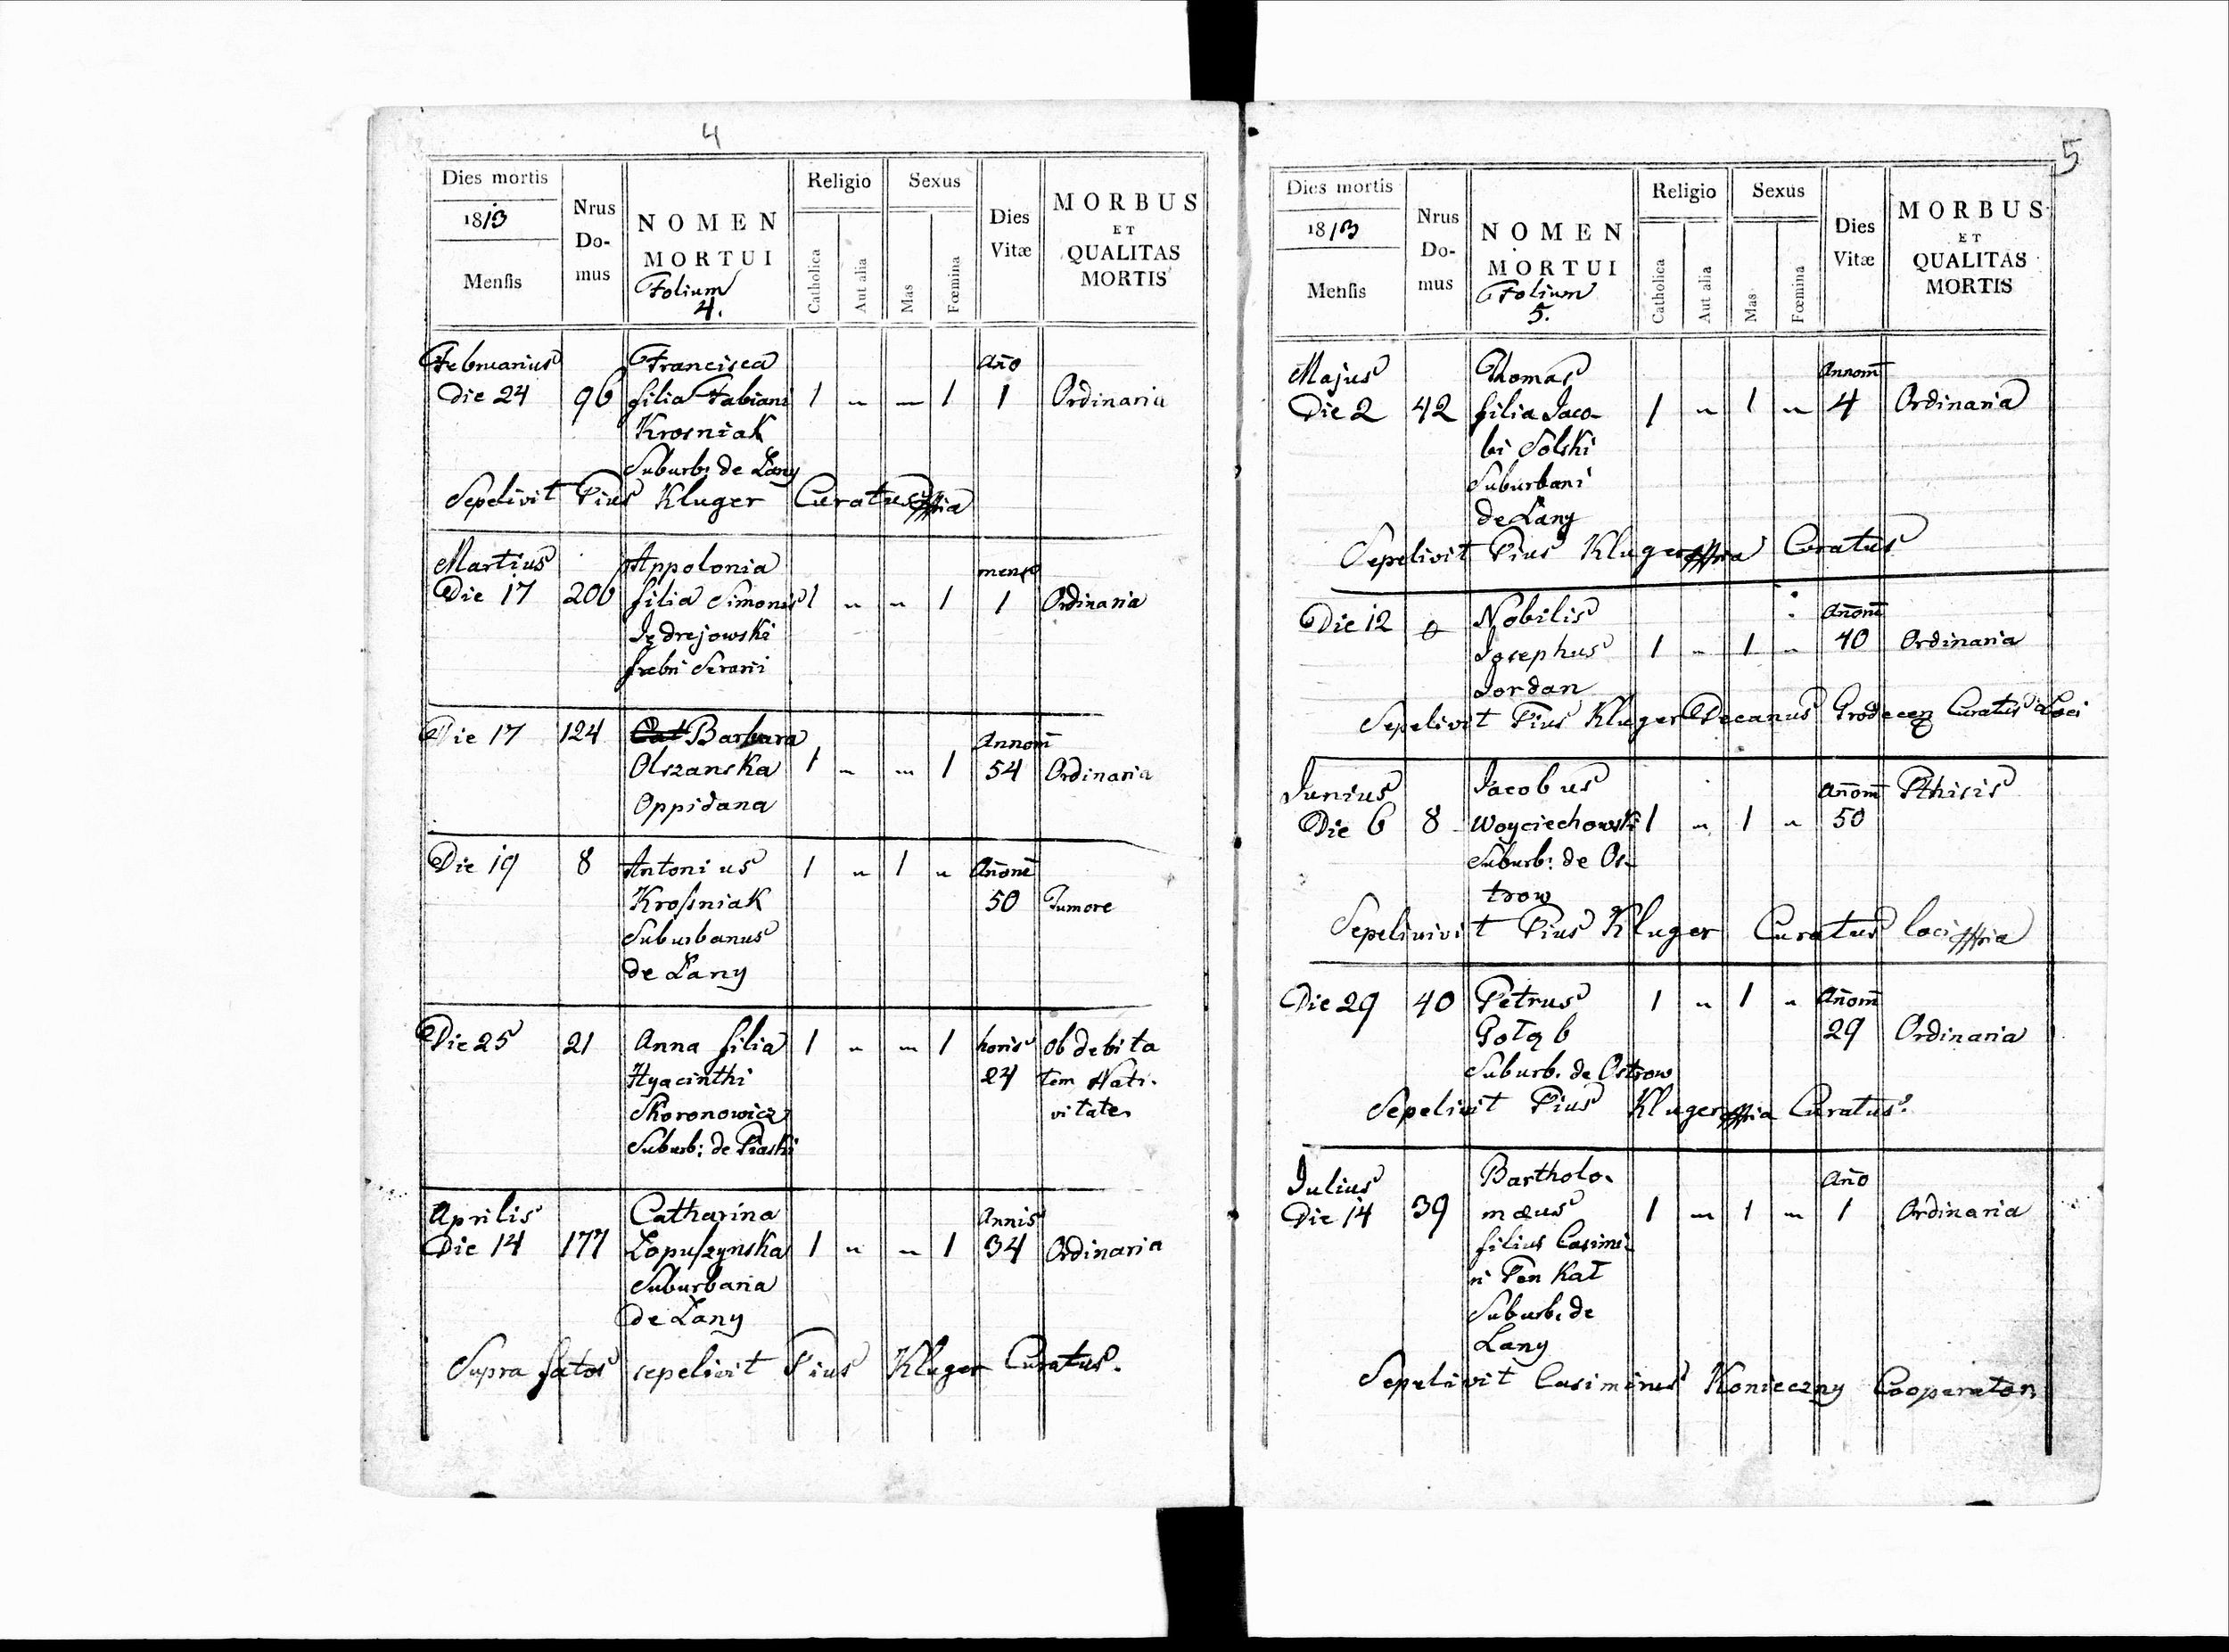 4
Dies mortis
1813
Menſis
Nrus Do- mus
NOMEN MORTUI
Folium 4.
Religio
Catholica
Aut alia
Sexus
Mas
Fœmina
Dies Vitæ
MORBUS ET QUALITAS MORTIS
Februarius Francisca Año
Die 24 96 filia Fabiani 1 „ — 1 1 Ordinaria
Krosniak
Suburb: de Łany
Sepelivit Pius Kluger Curatus
Martius Appolonia mense
Die 17 206 filia Simonis 1 „ „ 1 1 Ordinaria
Jędrejowski
Die 17 124 Barbara Annorū
Olszanska 1 „ „ 1 54 Ordinaria
Oppidana
Die 19 8 Antonius 1 „ 1 „ Añorū
Kroſniak 50 Tumore
Suburbanus
de Łany
Die 25 21 Anna filia 1 „ „ 1 horis Ob debita
Hyacinthi 24 tem Nati-
Skoronowicz vitate
Suburb: de Piaski
Aprilis Catharina Annis
Die 14 177 Łopuſzynska 1 „ „ 1 34 Ordinaria
Suburbana
de Łany
Supra fatos sepelivit Pius Kluger Curatus.
5
Dies mortis
1813
Menſis
Nrus Do- mus
NOMEN MORTUI
Folium 5.
Religio
Catholica
Aut alia
Sexus
Mas
Fœmina
Dies Vitæ
MORBUS ET QUALITAS MORTIS
Majus Thomas Annorū
Die 2 42 filia Jaco- 1 „ 1 „ 4 Ordinaria
bi Solski
Suburbani
de Łany
Sepelivit Pius Kluger Curatus
Die 12 0 Nobilis Añorū
Josephus 1 „ 1 „ 40 Ordinaria
Jordan
Sepelivit Pius Kluger Decanus Curatus Loci
Junius Jacobus Añorū Pthisis
Die 6 8 Woyciechowski 1 „ 1 „ 50
Suburb: de Os-
trow
Sepelivivit Pius Kluger Curatus loci
Die 29 40 Petrus 1 „ 1 „ Añorū
Gołąb 29 Ordinaria
Suburb. de Ostrow
Sepelivit Pius Kluger Curatus.
Julius Bartholo- Año
Die 14 39 mæus 1 „ 1 „ 1 Ordinaria
filius Casimi-
ri Penkał
Suburb. de
Łany
Sepelivit Casimirus Konieczny Cooperator